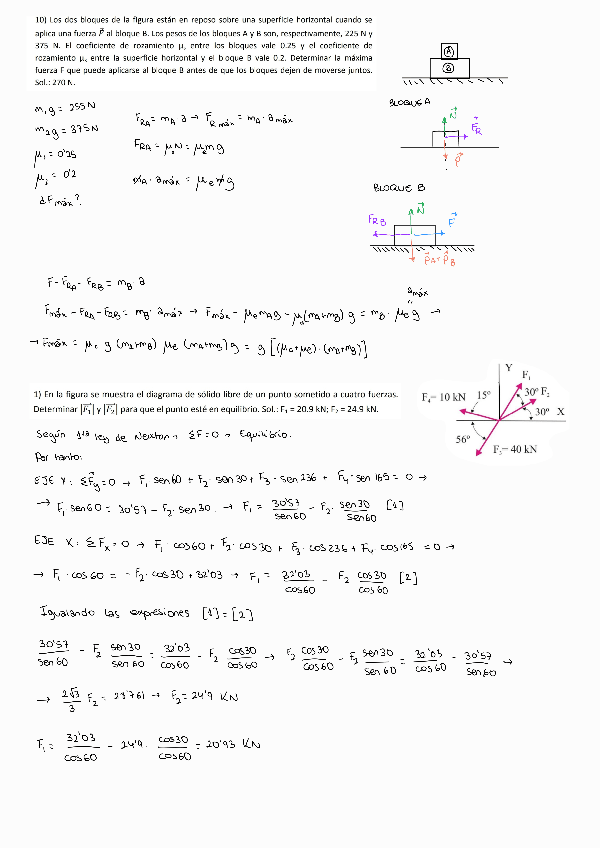 10) Los dos bloques de la figura están en reposo sobre una superficie horizontal cuando se
aplica una fuerza P⃗ al bloque B. Los pesos de los bloques A y B son, respectivamente, 225 N y
375 N. El coeficiente de rozamiento μ, entre los bloques vale 0.25 y el coeficiente de
rozamiento μ, entre la superficie horizontal y el bloque B vale 0.2. Determinar la máxima
fuerza F que puede aplicarse al bloque B antes de que los bloques dejen de moverse juntos.
Sol.: 270 N.
A
B
BLOQUE A
m₁g = 255N
m₂g = 375N
μ₁ = 0'25
μ₂ = 0'2
¿Fmáx?
F_RA = m_A a → F_R máx = m_A · a máx
F_RA = μₑN = μₑmg
m_A · a máx = μₑ m g
N⃗
F⃗_R
P⃗
BLOQUE B
F_RB
N⃗
F⃗
P⃗_A + P⃗_B
F - F_RA - F_RB = m_B a
Fmáx - F_RA - F_RB = m_B · a máx → Fmáx - μₑ m_A g - μ_c(m_A+m_B) g = m_B · μₑ g →
a máx
→ Fmáx = μ_c g (m_A+m_B) μₑ (m_A+m_B) g = g [(μ_c+μₑ)·(m_A+m_B)]
1) En la figura se muestra el diagrama de sólido libre de un punto sometido a cuatro fuerzas.
Determinar |F₁| y |F₂| para que el punto esté en equilibrio. Sol.: F₁ = 20.9 kN; F₂ = 24.9 kN.
Y
F₁
F₄= 10 kN
15°
30° F₂
30° X
56°
F₃= 40 kN
Según 1ra ley de Newton → ΣF = 0 → Equilibrio.
Por tanto:
EJE Y: ΣF⃗y = 0 → F₁ sen60 + F₂ · sen30 + F₃ · sen 236 + F₄ · sen 165 = 0 →
→ F₁ sen60 = 30'57 - F₂ · sen30 . → F₁ = 30'57/sen60 - F₂ · sen30/sen60 [1]
EJE X: ΣFx = 0 → F₁ · cos60 + F₂ · cos30 + F₃ · cos236 + F₄ cos165 = 0 →
→ F₁ · cos60 = - F₂ · cos30 + 32'03 → F₁ = 32'03/cos60 - F₂ cos30/cos60 [2]
Igualando las expresiones [1] = [2]
30'57/sen60 - F₂ sen30/sen60 = 32'03/cos60 - F₂ cos30/cos60 → F₂ cos30/cos60 - F₂ sen30/sen60 = 32'03/cos60 - 30'57/sen60 →
→ 2√3/3 F₂ = 28'761 → F₂ = 24'9 KN
F₁ = 32'03/cos60 - 24'9 · cos30/cos60 = 20'93 KN